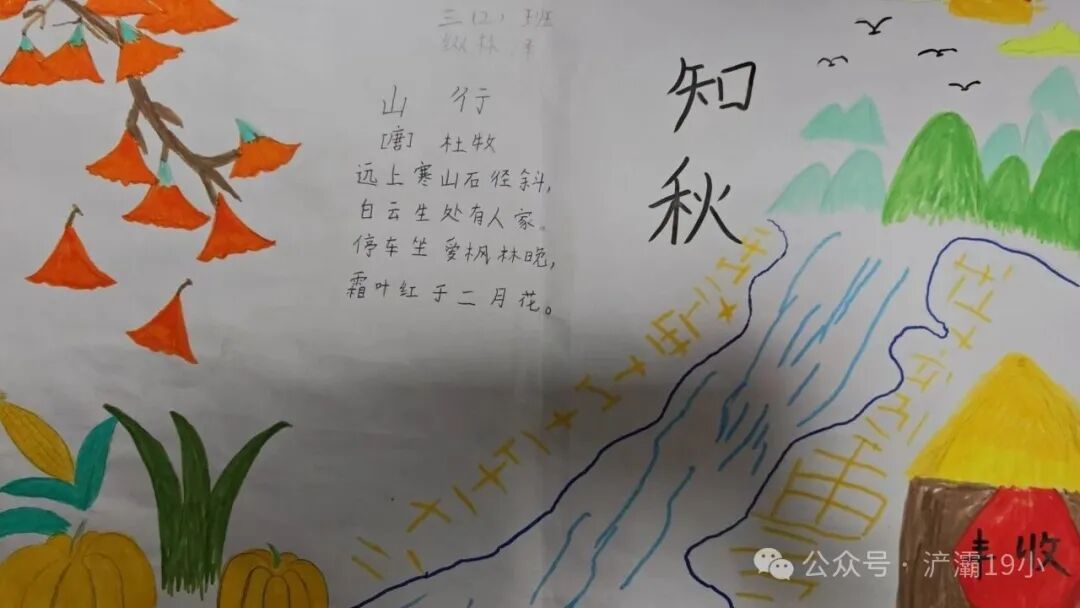 三(2)班
山行
[唐] 杜牧
远上寒山石径斜,
白云生处有人家。
停车坐爱枫林晚,
霜叶红于二月花。
知秋
丰收
公众号·浐灞19小